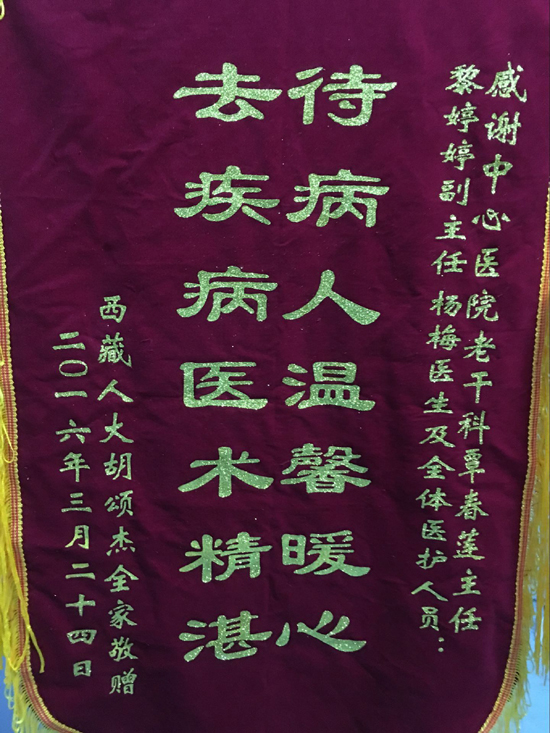 感谢中心医院老干科覃春莲主任
黎婷婷副主任杨梅医生及全体医护人员：
待病人温馨暖心
去疾病医术精湛
西藏人大胡颂杰全家敬赠
二〇一六年三月二十四日